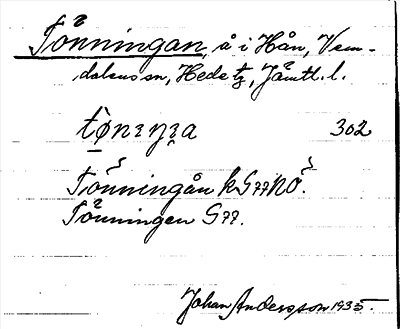 Tönningan, å i Hån, Vem-
dalens sn, Hede tg, Jämtl. l.
302
Tönningån k G77NÖ.
Tönningen G77.
Johan Andersson 1935.